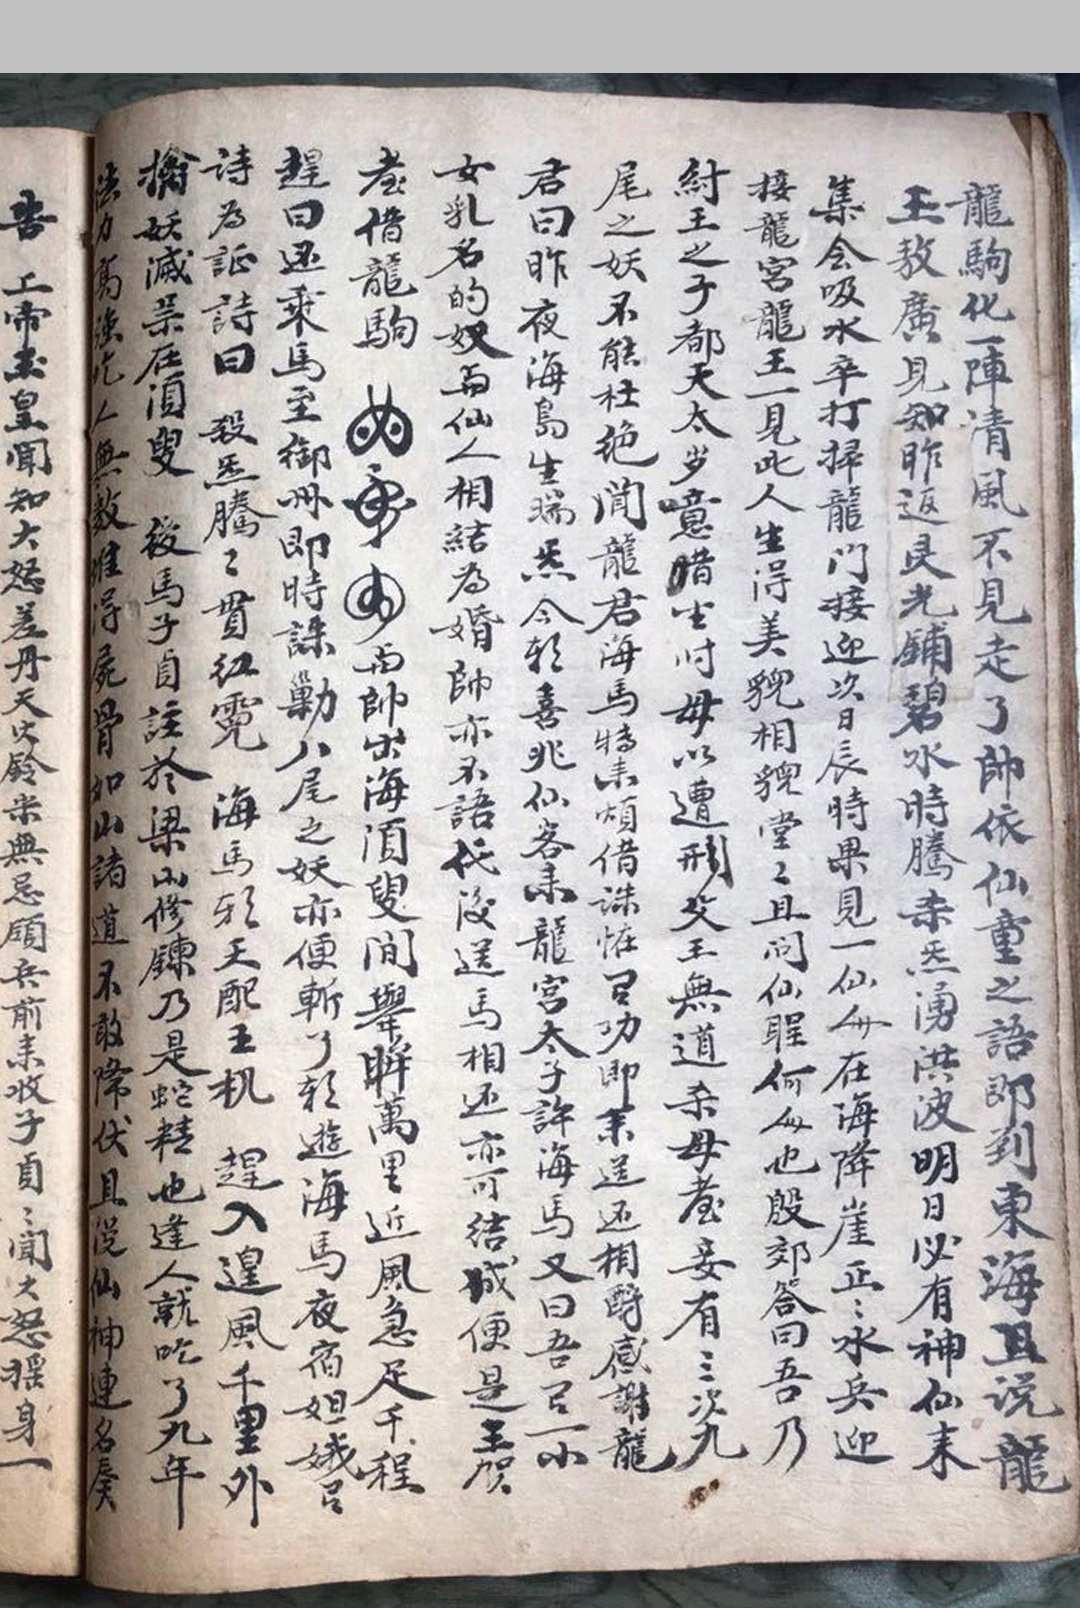 龍駒化一陣清風不見走了帥依仙童之語即到東海且说龍
王敖廣見知昨返艮光鋪碧水時騰杀炁湧洪波明日必有神仙来
集会吸水卒打掃龍門接迎次日辰時果見一仙舟在海降崖正〻水兵迎
接龍宮龍王一見此人生得美貌相貌堂〻且问仙聖何舟也殷郊答曰吾乃
紂王之子都天太岁噫腊生时母以遭刑父王無道杀母妾有三次九
尾之妖不能杜绝闻龍君海馬特来煩借誅怪召功即来送还相酧感謝龍
君曰昨夜海島生瑞炁今彩喜兆仙客来龍宮太子許海馬又曰吾召一小
女乳名的奴与仙人相結為婚帥亦不語代後送馬相还亦可結城便是王賀
借龍駒 与帥出海須臾间舉眸萬里近風急足千程
趕曰迅乘馬至御册即時誅勦八尾之妖亦便斬了彩遊海馬夜宿妲娥召
诗為証詩曰 殺炁騰〻貫紅霓 海馬彩王配玉机 趕入遑風千里外
擒妖滅祟在須臾 後馬子貞註於梁山修鍊乃是蛇精也逢人就吃了九年
法力高強吃人無数堆得屍骨如山諸道不敢降伏且说仙神連名奏
告 上帝玉皇聞知大怒差丹天火铃宋無忌領兵前来收子貞〻聞大怒摇身一